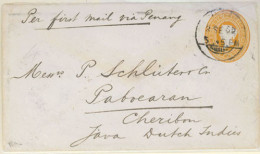 Per first mail via Penang
Messrs P. Schlüter & Co
Pabocaran
Cheribon
Java Dutch Indies